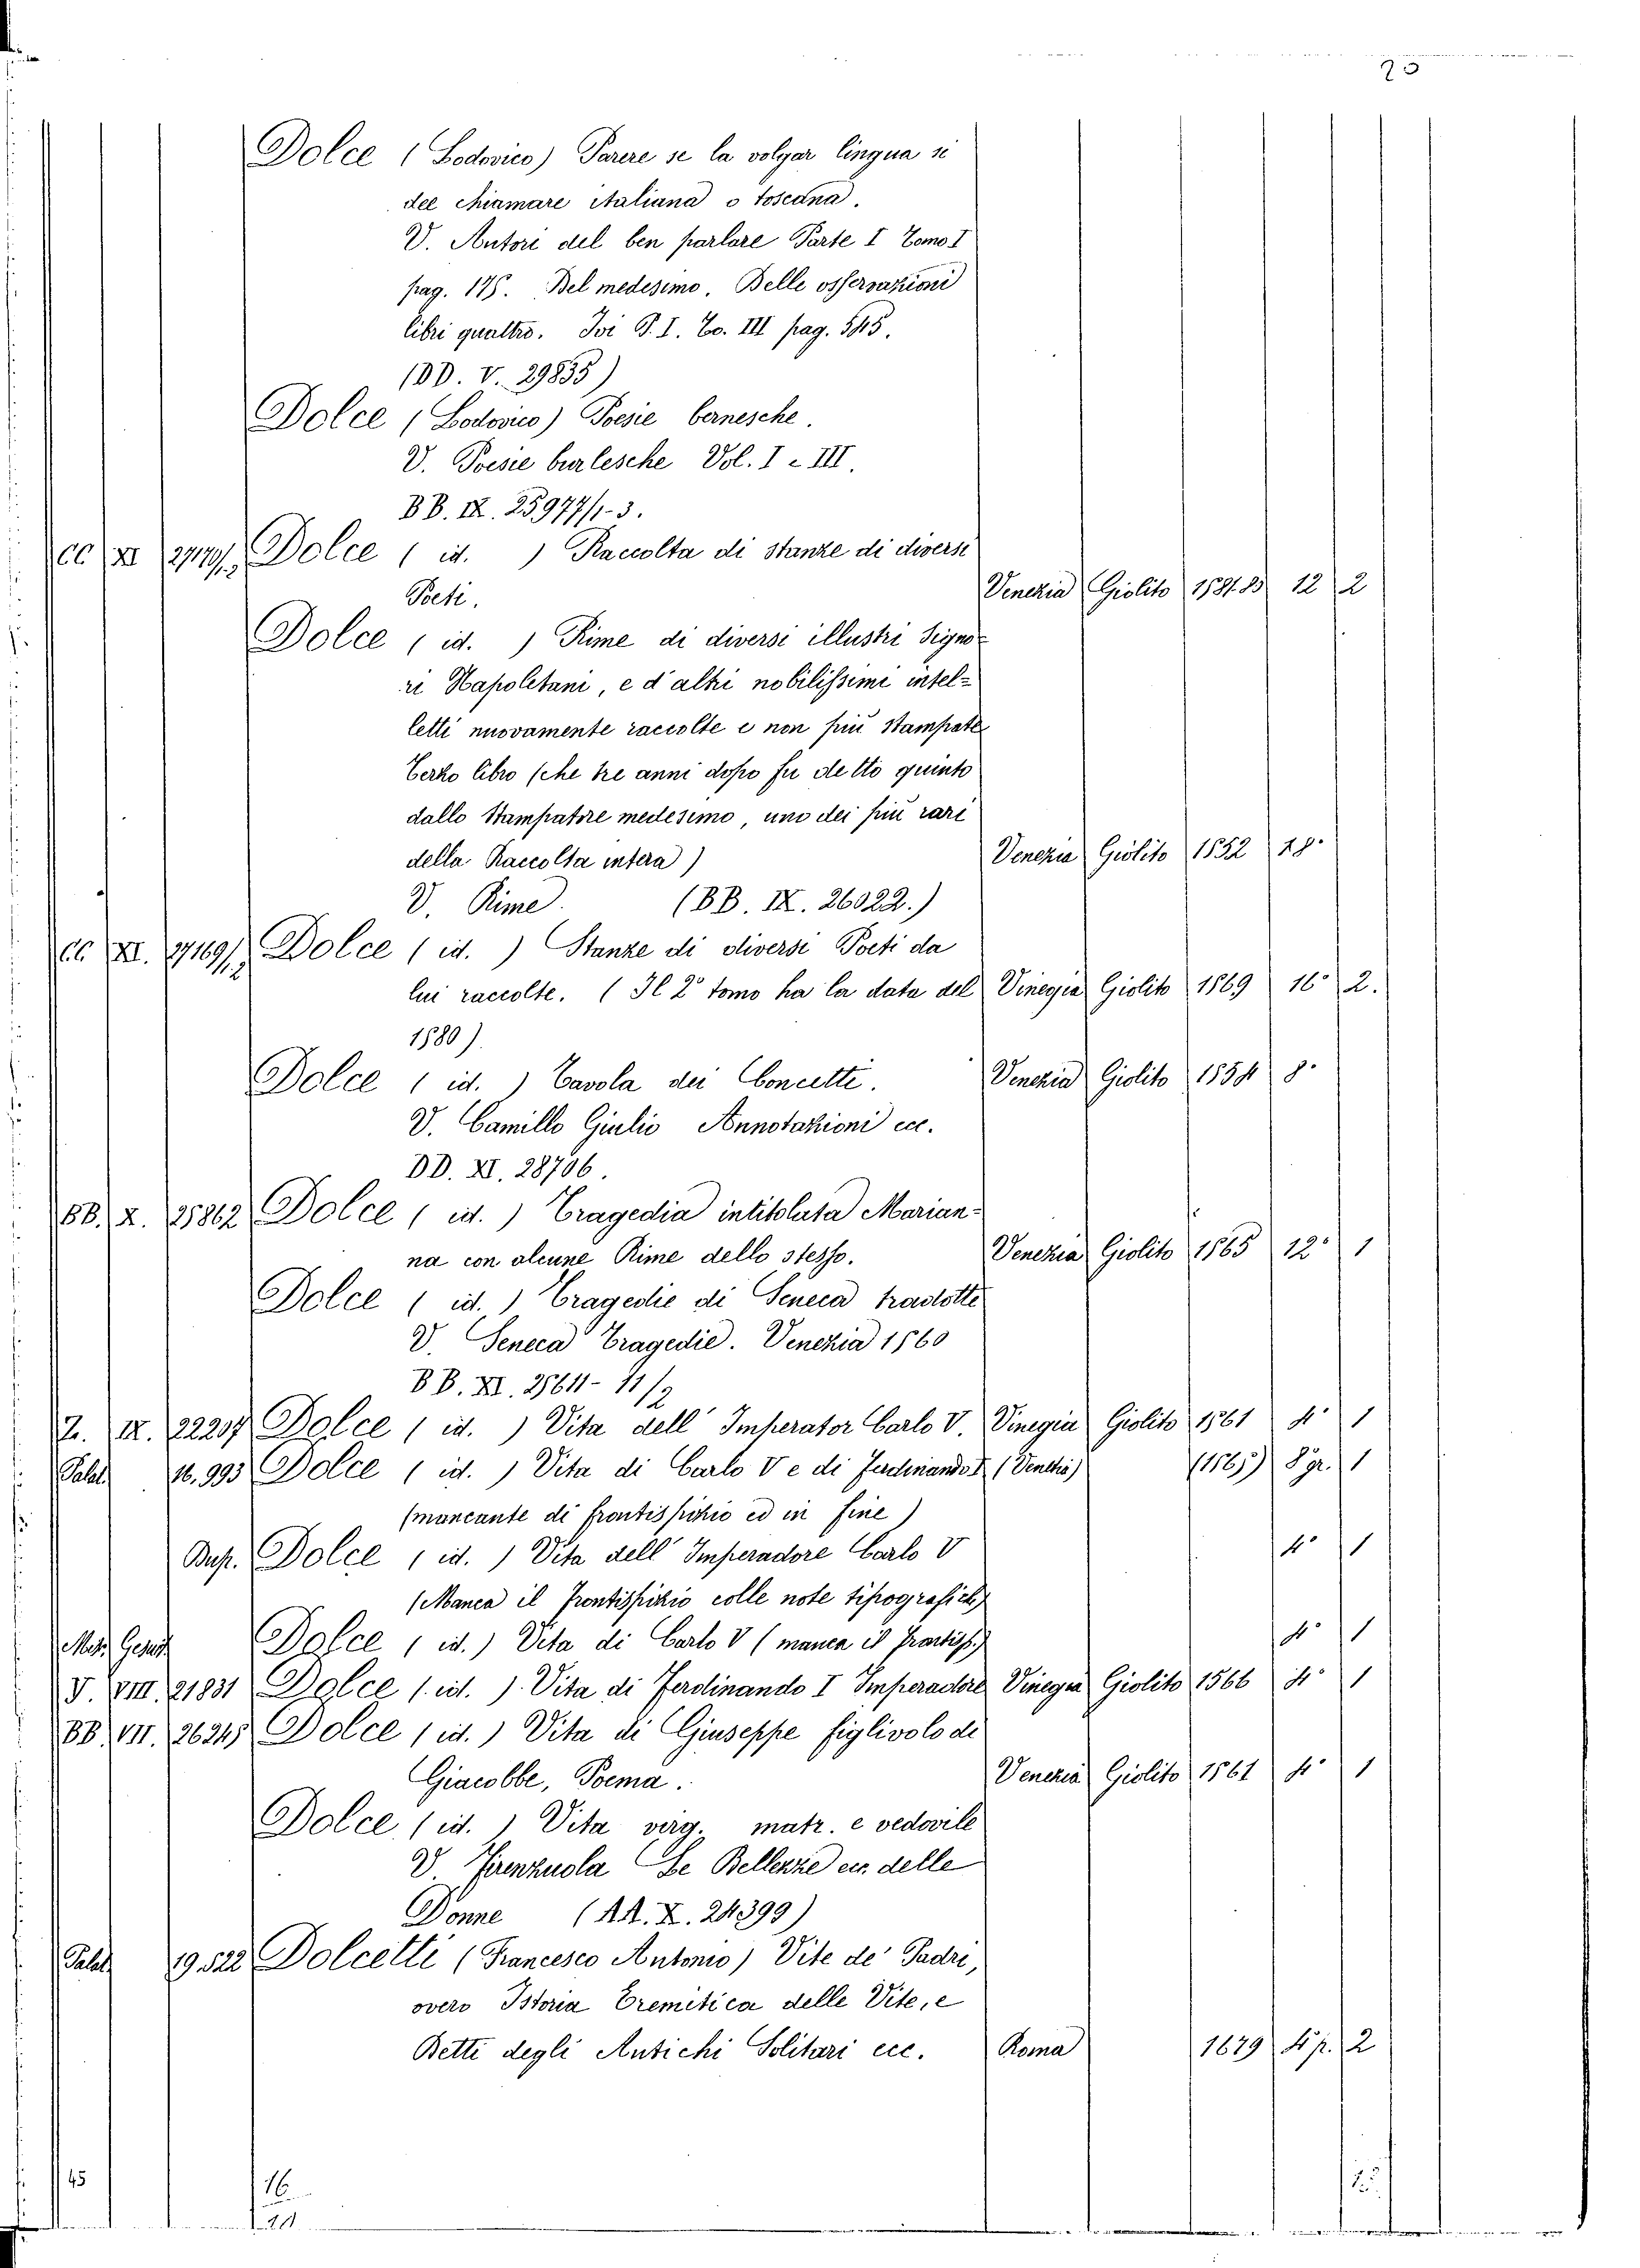 20
Dolce (Lodovico) Parere se la volgar lingua si
dee chiamare italiana o toscana.
V. Autori del ben parlare Parte I Tomo I
pag. 175. Del medesimo. Delle osservazioni
libri quattro. Ivi P. I. To. III pag. 545.
(DD. V. 29835)
Dolce (Lodovico) Poesie bernesche.
V. Poesie burlesche Vol. I e III.
BB. IX. 25977/1-3.
CC XI 27170/1,2 Dolce (id.) Raccolta di stanze di diversi
Poeti. Venezia Giolito 1581.83 12 2
Dolce (id.) Rime di diversi illustri Signo-
ri Napoletani, e d'altri nobilissimi intel=
letti nuovamente raccolte e non più stampate
Terzo libro (che tre anni dopo fu detto quinto
dallo stampatore medesimo, uno dei più rari
della Raccolta intera) Venezia Giolito 1552 28.
V. Rime. (BB. IX. 26022.)
CC XI. 27169/1,2 Dolce (id.) Stanze di diversi Poeti da
lui raccolte. (Il 2° tomo ha la data del Vinegia Giolito 1569 16° 2.
1580).
Dolce (id.) Tavola dei Concetti. Venezia Giolito 1554 8°
V. Camillo Giulio Annotazioni ecc.
DD. XI. 28706.
BB. X. 25862 Dolce (id.) Tragedia intitolata Marian-
na con alcune Rime dello stesso. Venezia Giolito 1565 12° 1
Dolce (id.) Tragedie di Seneca tradotte
V. Seneca Tragedie. Venezia 1560
BB. XI. 25611-11/2
Z. IX. 22207 Dolce (id.) Vita dell' Imperator Carlo V. Vinegia Giolito 1561 4° 1
Palat. 16.993 Dolce (id.) Vita di Carlo V e di Ferdinando I (Venezia) (1565) 8 gr. 1
(mancante di frontispizio ed in fine)
Dup. Dolce (id.) Vita dell' Imperadore Carlo V 4° 1
(Manca il frontispizio colle note tipografich)
Mss. Gesuit. Dolce (id.) Vita di Carlo V (manca il frontisp.) 4° 1
V. VIII. 21831 Dolce (id.) Vita di Ferdinando I Imperadore Vinegia Giolito 1566 4° 1
BB. VII. 26245 Dolce (id.) Vita di Giuseppe figlivolo di
Giacobbe, Poema. Venezia Giolito 1561 4° 1
Dolce (id.) Vita verg. matr. e vedovile
V. Firenzuola Le Bellezze ecc. delle
Donne (AA. X. 24399)
Palat. 19.522 Dolcetti (Francesco Antonio) Vite de' Padri,
overo Istoria Eremitica delle Vite, e
Detti degli Antichi Solitari ecc. Roma 1679 4 p. 2
45 16 15